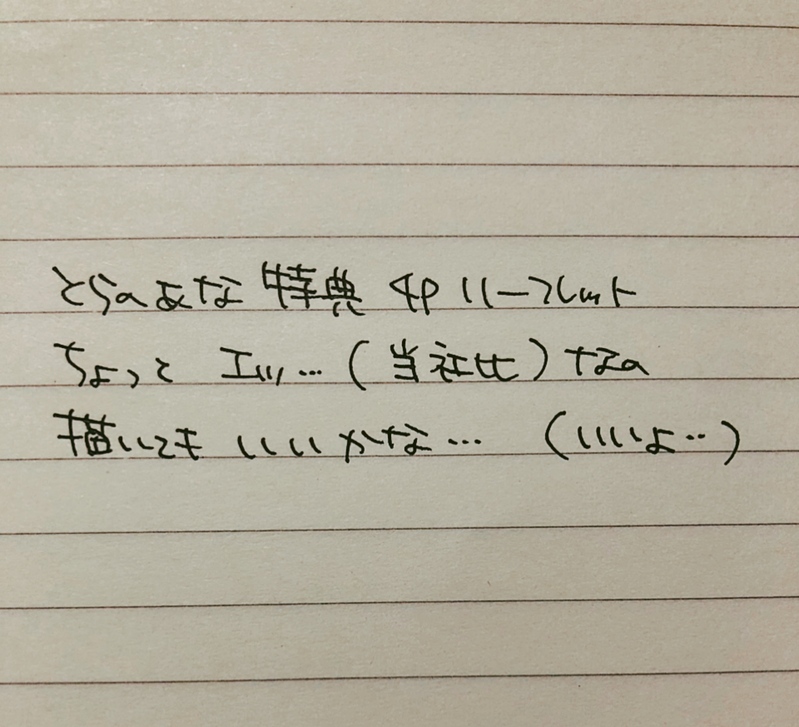 とらのあな 特典 4P リーフレット
ちょっと エッ…(当社比)なの
描いても いいかな… (いいよ‥)